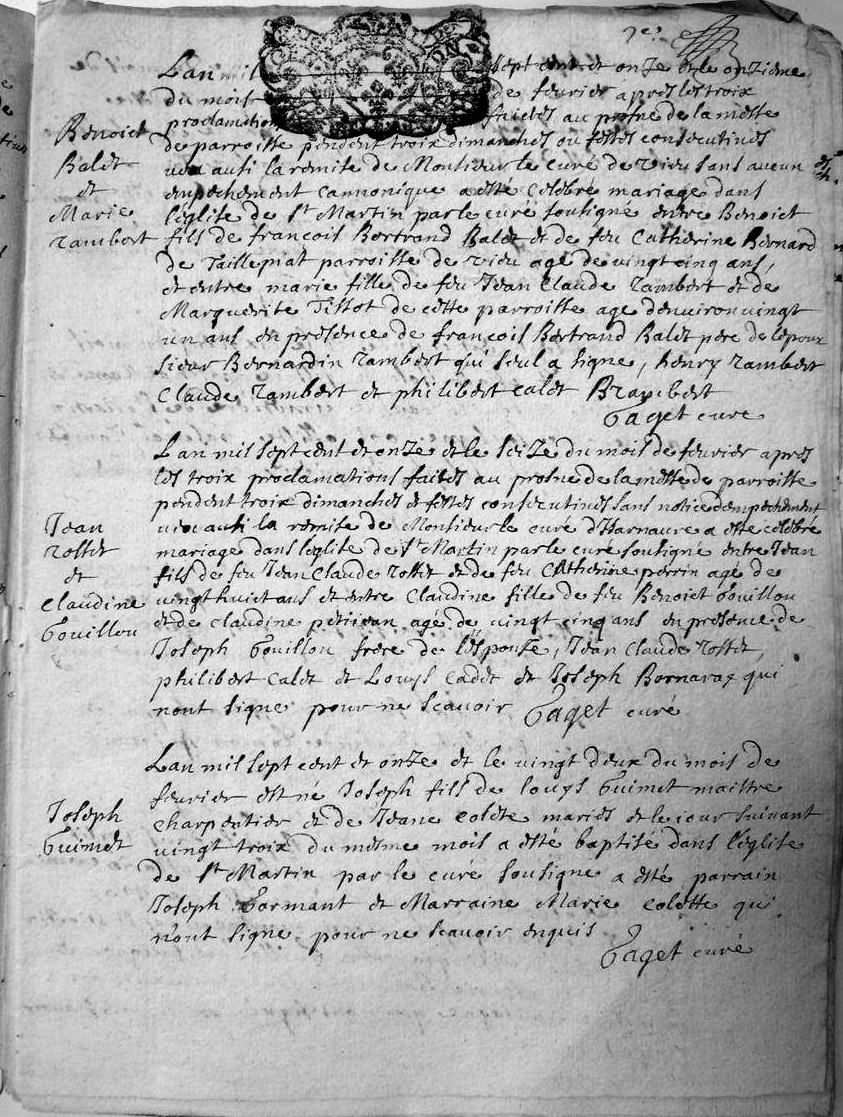 Lan mil sept cent et onze et le onzieme
du mois de feurier apres les troix
proclamations faictes au prosne de la messe
Benoict
de parroisse pendent troix dimanches ou festes consecutiues
Balet
veu aussi la remise de Monsieur le curé de vieu sans aucun
et
empechement cannonique a esté celebré mariage dans
Marie
l'eglise de St Martin par le curé sousigné entre Benoict
Rambert
fils de francois Bertrand Balet et de feu Catherine Bernard
de Taillepiat parroisse de vieu agé de vingt cinq ans,
et entre marie fille de feu Jean Claude Rambert et de
Marguerite Tissot de cette parroisse age denviron vingt
un ans en presence de francois Bertrand Balet pere de lepoux
sieur Bernardin Rambert qui seul a signe, henry Rambert
Claude Rambert et philibert calet BRambert
Gaget cure
Lan mil sept cent et onze et le seize du mois de feurier apres
les troix proclamations faites au prosne de la messe de parroisse
pendent troix dimanches et festes consecutiues sans notice dempechement
Jean
veu aussi la remise de Monsieur le curé d'Harnaure a esté celebré
Rosset
mariage dans leglise de St Martin par le curé sousigné entre Jean
et
fils de feu Jean Claude Rosset et de feu Catherine perrin agé de
Claudine
vingt huict ans et entre Claudine fille de feu Benoict Gouillou
Gouillou
et de claudine petitian agé de vingt cinq ans en presence de
Joseph Gouillou frere de l'espouse, Jean Claude Rosset,
philibert Calet et Louys Cadet et Joseph Bornarax qui
nont signe pour ne scauoir Gaget curé
Lan mil sept cent et onze et le vingt deux du mois de
feurier est né Joseph fils de louys Guimet maistre
Joseph
charpentier et de Jeane colete mariés et le iour suiuant
Guimet
vingt troix du mesme mois a esté baptisé dans l'eglise
de St Martin par le curé sousigne a esté parrain
Joseph Gormant et Marraine Marie colette qui
n'ont signe pour ne scauoir enquis
Gaget curé